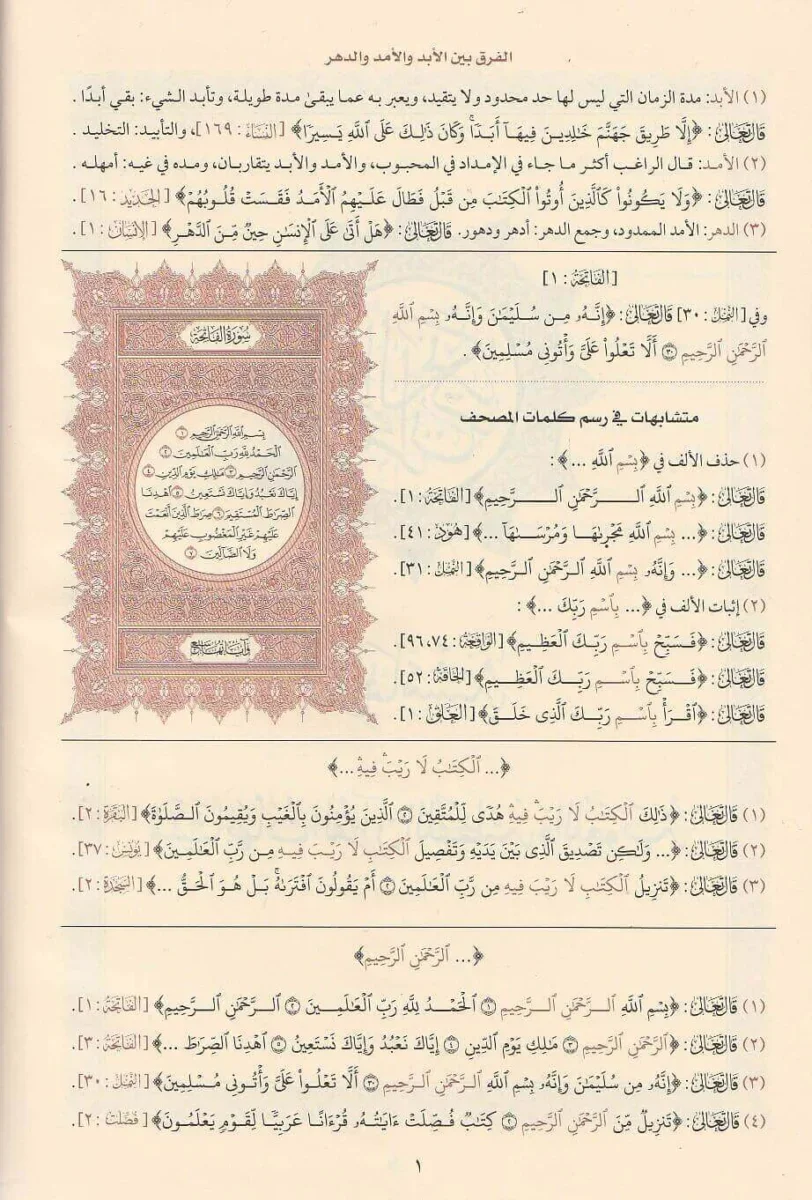 الفرق بين الأبد والأمد والدهر
(١) الأبد: مدة الزمان التي ليس لها حد محدود ولا يتقيد، ويعبر به عما يبقىٰ مدة طويلة، وتأبد الشيء: بقي أبدًا .
قَالَ تَعَالَىٰ: ﴿إِلَّا طَرِيقَ جَهَنَّمَ خَٰلِدِينَ فِيهَآ أَبَدٗاۚ وَكَانَ ذَٰلِكَ عَلَى ٱللَّهِ يَسِيرٗا﴾ [النِّسَاء : ١٦٩]، والتأبيد: التخليد .
(٢) الأمد: قال الراغب أكثر ما جاء في الإمداد في المحبوب، والأمد والأبد يتقاربان، ومده في غيه: أمهله .
قَالَ تَعَالَىٰ: ﴿وَلَا يَكُونُواْ كَٱلَّذِينَ أُوتُواْ ٱلۡكِتَٰبَ مِن قَبۡلُ فَطَالَ عَلَيۡهِمُ ٱلۡأَمَدُ فَقَسَتۡ قُلُوبُهُمۡ﴾ [الحَدِيد : ١٦] .
(٣) الدهر: الأمد الممدود، وجمع الدهر: أدهر ودهور. قَالَ تَعَالَىٰ: ﴿هَلۡ أَتَىٰ عَلَى ٱلۡإِنسَٰنِ حِينٞ مِّنَ ٱلدَّهۡرِ﴾ [الإِنسَان : ١] .
[الفَاتِحَة : ١]
وفي [النَّمْل : ٣٠] قَالَ تَعَالَىٰ: ﴿إِنَّهُۥ مِن سُلَيۡمَٰنَ وَإِنَّهُۥ بِسۡمِ ٱللَّهِ
ٱلرَّحۡمَٰنِ ٱلرَّحِيمِ ٣٠ أَلَّا تَعۡلُواْ عَلَيَّ وَأۡتُونِي مُسۡلِمِينَ﴾ .
متشابهات في رسم كلمات المصحف
(١) حذف الألف في ﴿بِسۡمِ ٱللَّهِ ...﴾ :
قَالَ تَعَالَىٰ: ﴿بِسۡمِ ٱللَّهِ ٱلرَّحۡمَٰنِ ٱلرَّحِيمِ﴾ [الفَاتِحَة : ١].
قَالَ تَعَالَىٰ: ﴿... بِسۡمِ ٱللَّهِ مَجۡر۪ىٰهَا وَمُرۡسَىٰهَآ ...﴾ [هُود : ٤١].
قَالَ تَعَالَىٰ: ﴿... وَإِنَّهُۥ بِسۡمِ ٱللَّهِ ٱلرَّحۡمَٰنِ ٱلرَّحِيمِ﴾ [النَّمْل : ٣١].
(٢) إثبات الألف في ﴿... بِٱسۡمِ رَبِّكَ ...﴾ :
قَالَ تَعَالَىٰ: ﴿فَسَبِّحۡ بِٱسۡمِ رَبِّكَ ٱلۡعَظِيمِ﴾ [الوَاقِعَة : ٧٤، ٩٦].
قَالَ تَعَالَىٰ: ﴿فَسَبِّحۡ بِٱسۡمِ رَبِّكَ ٱلۡعَظِيمِ﴾ [الحَاقَّة : ٥٢].
قَالَ تَعَالَىٰ: ﴿ٱقۡرَأۡ بِٱسۡمِ رَبِّكَ ٱلَّذِي خَلَقَ﴾ [العَلَق : ١].
سُورَةُ الفَاتِحَةِ
بِسۡمِ ٱللَّهِ ٱلرَّحۡمَٰنِ ٱلرَّحِيمِ ١
ٱلۡحَمۡدُ لِلَّهِ رَبِّ ٱلۡعَٰلَمِينَ ٢
ٱلرَّحۡمَٰنِ ٱلرَّحِيمِ ٣ مَٰلِكِ يَوۡمِ ٱلدِّينِ ٤
إِيَّاكَ نَعۡبُدُ وَإِيَّاكَ نَسۡتَعِينُ ٥ ٱهۡدِنَا
ٱلصِّرَٰطَ ٱلۡمُسۡتَقِيمَ ٦ صِرَٰطَ ٱلَّذِينَ أَنۡعَمۡتَ
عَلَيۡهِمۡ غَيۡرِ ٱلۡمَغۡضُوبِ عَلَيۡهِمۡ
وَلَا ٱلضَّآلِّينَ ٧
وَآيَاتُهَا سَبْعٌ
﴿... ٱلۡكِتَٰبُ لَا رَيۡبَۛ فِيهِۛ ...﴾
(١) قَالَ تَعَالَىٰ: ﴿ذَٰلِكَ ٱلۡكِتَٰبُ لَا رَيۡبَۛ فِيهِۛ هُدٗى لِّلۡمُتَّقِينَ ٢ ٱلَّذِينَ يُؤۡمِنُونَ بِٱلۡغَيۡبِ وَيُقِيمُونَ ٱلصَّلَوٰةَ﴾ [البَقَرَة : ٢].
(٢) قَالَ تَعَالَىٰ: ﴿... وَلَٰكِن تَصۡدِيقَ ٱلَّذِي بَيۡنَ يَدَيۡهِ وَتَفۡصِيلَ ٱلۡكِتَٰبِ لَا رَيۡبَ فِيهِ مِن رَّبِّ ٱلۡعَٰلَمِينَ﴾ [يُونُس : ٣٧].
(٣) قَالَ تَعَالَىٰ: ﴿تَنزِيلُ ٱلۡكِتَٰبِ لَا رَيۡبَ فِيهِ مِن رَّبِّ ٱلۡعَٰلَمِينَ ٢ أَمۡ يَقُولُونَ ٱفۡتَرَىٰهُۚ بَلۡ هُوَ ٱلۡحَقُّ ...﴾ [السَّجْدَة : ٢].
﴿... ٱلرَّحۡمَٰنِ ٱلرَّحِيمِ﴾
(١) قَالَ تَعَالَىٰ: ﴿بِسۡمِ ٱللَّهِ ٱلرَّحۡمَٰنِ ٱلرَّحِيمِ ١ ٱلۡحَمۡدُ لِلَّهِ رَبِّ ٱلۡعَٰلَمِينَ ٢ ٱلرَّحۡمَٰنِ ٱلرَّحِيمِ﴾ [الفَاتِحَة : ١].
(٢) قَالَ تَعَالَىٰ: ﴿ٱلرَّحۡمَٰنِ ٱلرَّحِيمِ ٣ مَٰلِكِ يَوۡمِ ٱلدِّينِ ٤ إِيَّاكَ نَعۡبُدُ وَإِيَّاكَ نَسۡتَعِينُ ٥ ٱهۡدِنَا ٱلصِّرَٰطَ ...﴾ [الفَاتِحَة : ٣].
(٣) قَالَ تَعَالَىٰ: ﴿إِنَّهُۥ مِن سُلَيۡمَٰنَ وَإِنَّهُۥ بِسۡمِ ٱللَّهِ ٱلرَّحۡمَٰنِ ٱلرَّحِيمِ ٣٠ أَلَّا تَعۡلُواْ عَلَيَّ وَأۡتُونِي مُسۡلِمِينَ﴾ [النَّمْل : ٣٠].
(٤) قَالَ تَعَالَىٰ: ﴿تَنزِيلٞ مِّنَ ٱلرَّحۡمَٰنِ ٱلرَّحِيمِ ٢ كِتَٰبٞ فُصِّلَتۡ ءَايَٰتُهُۥ قُرۡءَانًا عَرَبِيّٗا لِّقَوۡمٖ يَعۡلَمُونَ﴾ [فُصِّلَت : ٢].
١